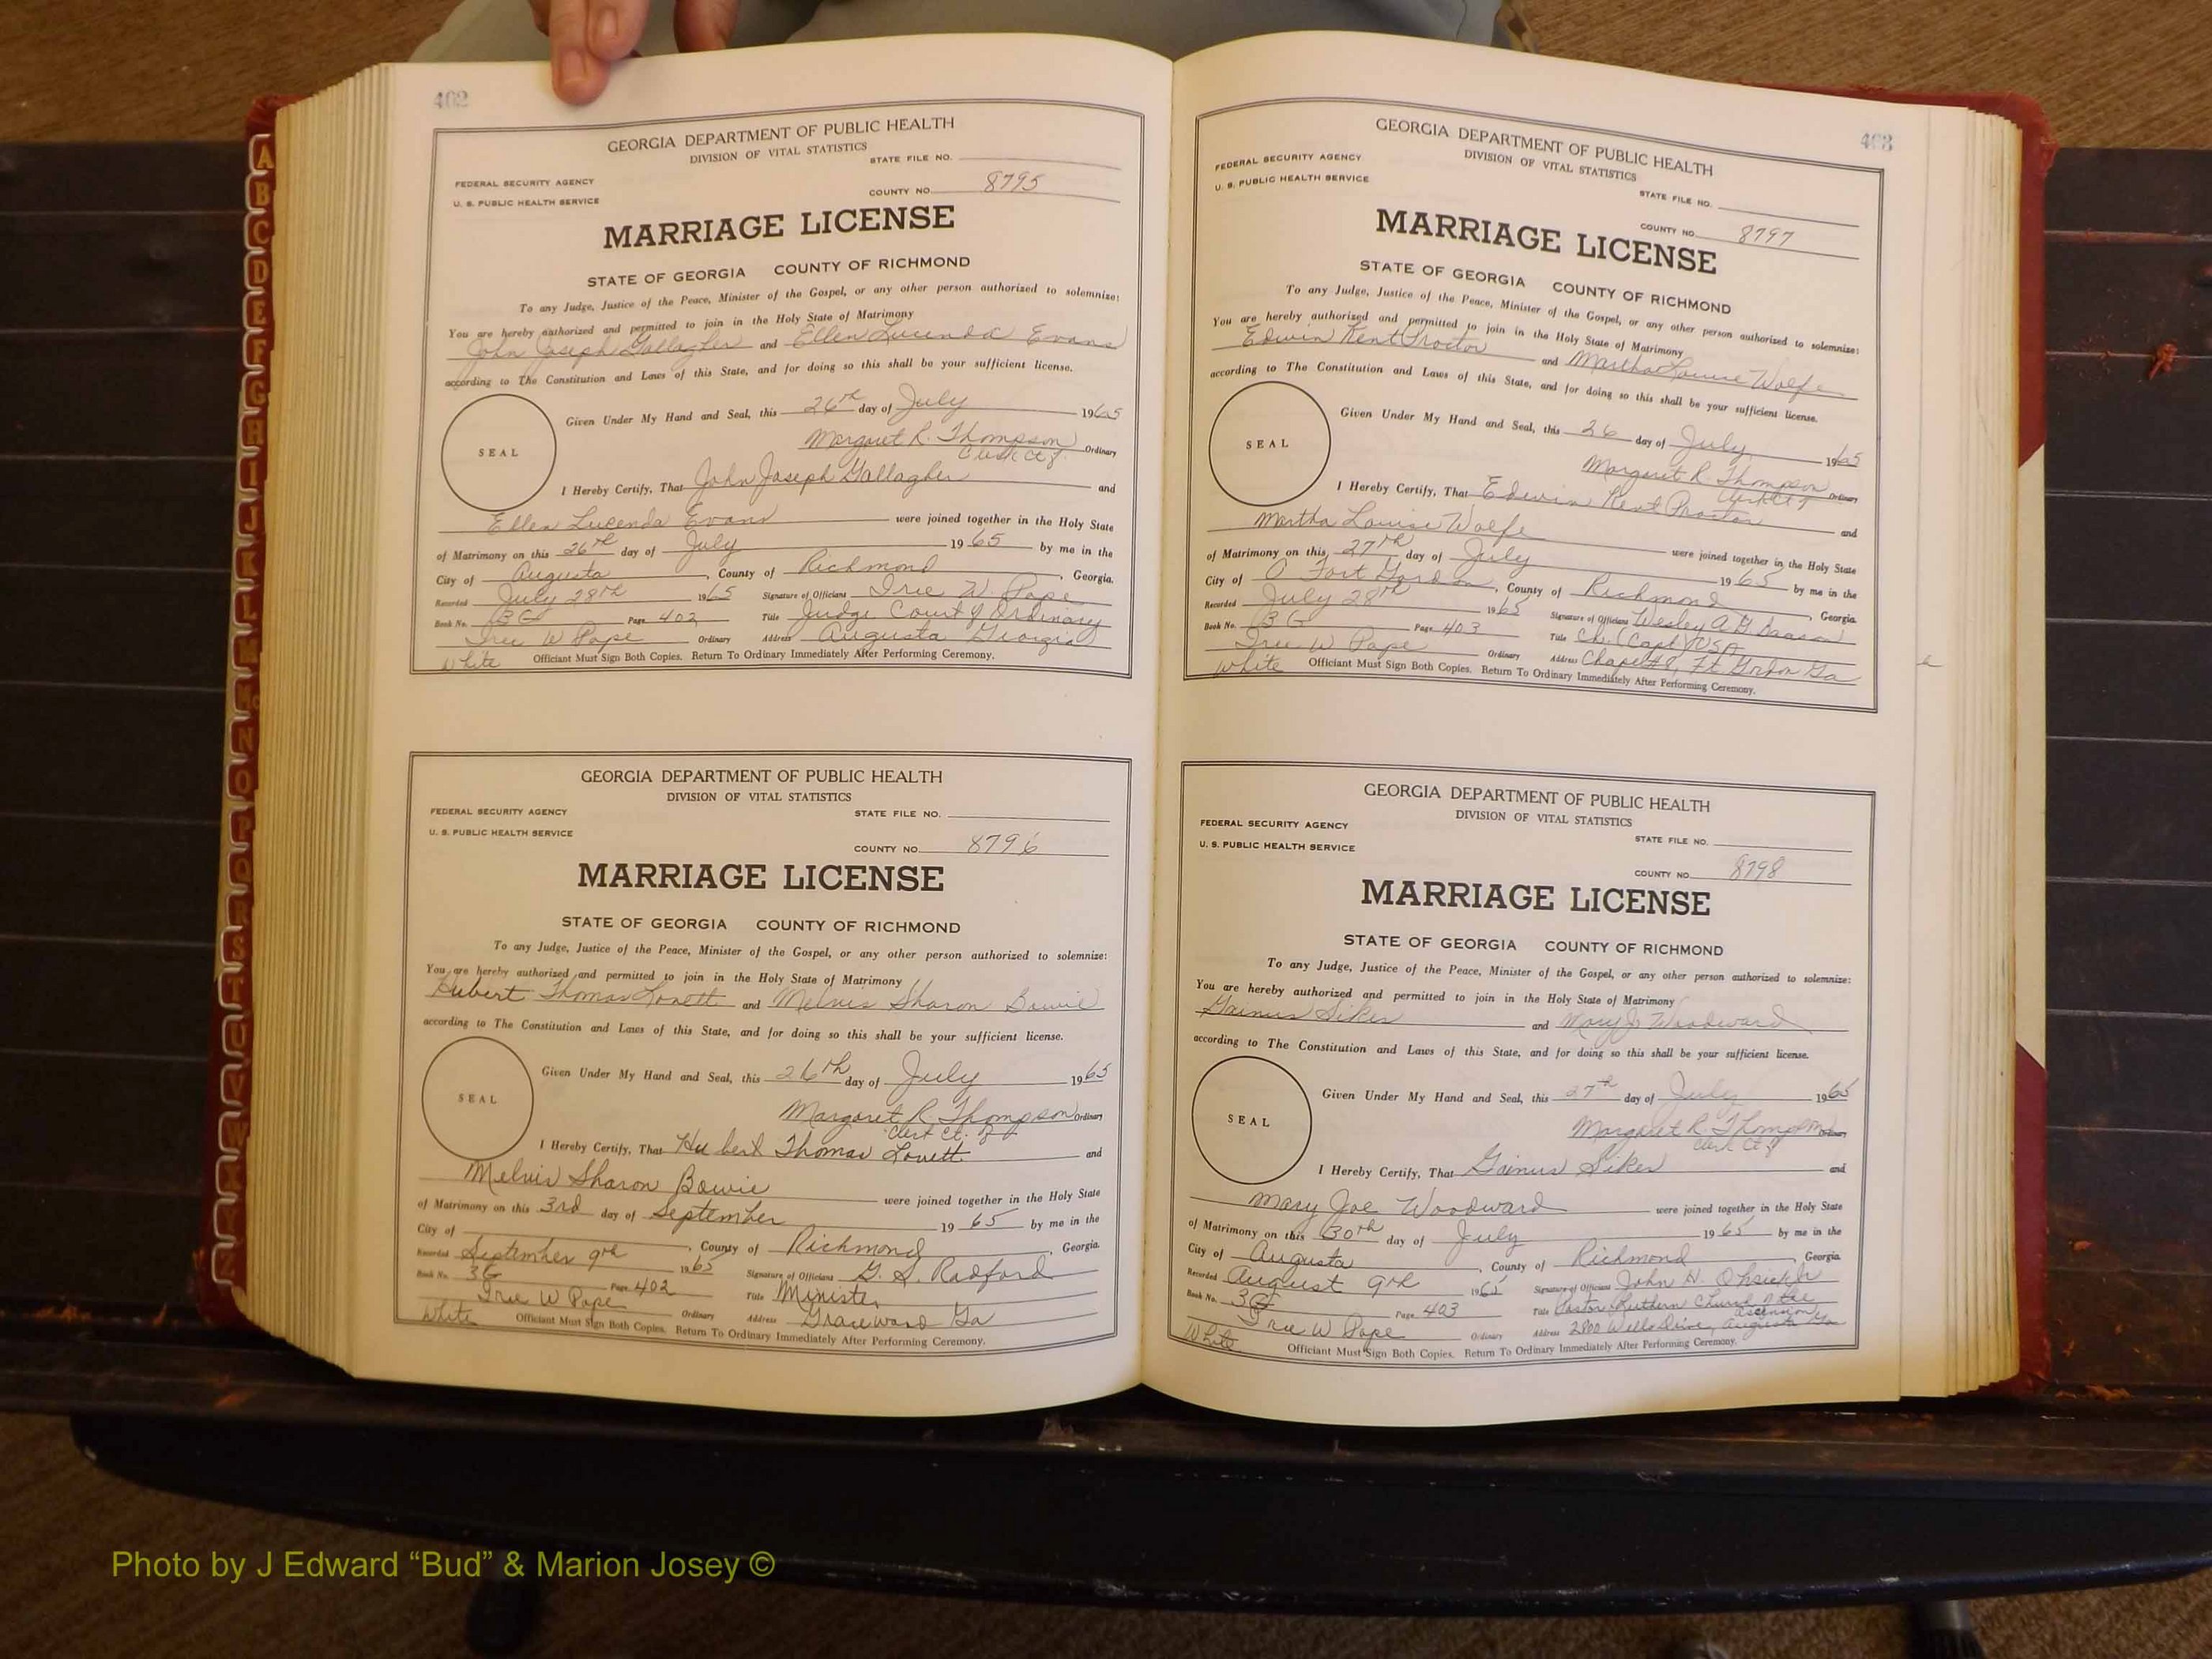 A
B
C
D
E
F
G
H
I
J
K
L
M
Mc
N
O
P
Q
R
S
T
U
V
W
X
Y
Z
402
GEORGIA DEPARTMENT OF PUBLIC HEALTH
DIVISION OF VITAL STATISTICS
STATE FILE NO.
FEDERAL SECURITY AGENCY
U. S. PUBLIC HEALTH SERVICE
COUNTY NO. 8795
MARRIAGE LICENSE
STATE OF GEORGIA COUNTY OF RICHMOND
To any Judge, Justice of the Peace, Minister of the Gospel, or any other person authorized to solemnize:
You are hereby authorized and permitted to join in the Holy State of Matrimony
John Joseph Gallagher and Ellen Lucenda Evans
according to The Constitution and Laws of this State, and for doing so this shall be your sufficient license.
Given Under My Hand and Seal, this 26th day of July 1965
SEAL
Margaret R. Thompson Ordinary
Clerk Ct of
I Hereby Certify, That John Joseph Gallagher and
Ellen Lucenda Evans were joined together in the Holy State
of Matrimony on this 26th day of July 1965 by me in the
City of Augusta, County of Richmond, Georgia.
Recorded July 28th 1965 Signature of Officiant Iree W. Pape
Book No. 3G Page 402 Title Judge Court of Ordinary
Iree W Pape Ordinary Address Augusta Georgia
White Officiant Must Sign Both Copies. Return To Ordinary Immediately After Performing Ceremony.
GEORGIA DEPARTMENT OF PUBLIC HEALTH
DIVISION OF VITAL STATISTICS
FEDERAL SECURITY AGENCY
STATE FILE NO.
U. S. PUBLIC HEALTH SERVICE
COUNTY NO. 8796
MARRIAGE LICENSE
STATE OF GEORGIA COUNTY OF RICHMOND
To any Judge, Justice of the Peace, Minister of the Gospel, or any other person authorized to solemnize:
You are hereby authorized and permitted to join in the Holy State of Matrimony
Hubert Thomas Lovett and Melvis Sharon Bowie
according to The Constitution and Laws of this State, and for doing so this shall be your sufficient license.
Given Under My Hand and Seal, this 26th day of July 1965
SEAL
Margaret R. Thompson Ordinary
Clerk Ct. of
I Hereby Certify, That Hubert Thomas Lovett and
Melvis Sharon Bowie were joined together in the Holy State
of Matrimony on this 3rd day of September 1965 by me in the
City of , County of Richmond, Georgia.
Recorded September 9th 1965 Signature of Officiant G. S. Radford
Book No. 3G Page 402 Title Minister
Iree W Pape Ordinary Address Graceward Ga
White Officiant Must Sign Both Copies. Return To Ordinary Immediately After Performing Ceremony.
403
GEORGIA DEPARTMENT OF PUBLIC HEALTH
DIVISION OF VITAL STATISTICS
FEDERAL SECURITY AGENCY
U. S. PUBLIC HEALTH SERVICE
STATE FILE NO.
COUNTY NO. 8797
MARRIAGE LICENSE
STATE OF GEORGIA COUNTY OF RICHMOND
To any Judge, Justice of the Peace, Minister of the Gospel, or any other person authorized to solemnize:
You are hereby authorized and permitted to join in the Holy State of Matrimony
Edwin Kent Proctor and Martha Louise Wolfe
according to The Constitution and Laws of this State, and for doing so this shall be your sufficient license.
Given Under My Hand and Seal, this 26 day of July 1965
SEAL
Margaret R. Thompson Ordinary
Clerk Ct of
I Hereby Certify, That Edwin Kent Proctor and
Martha Louise Wolfe were joined together in the Holy State
of Matrimony on this 27th day of July 1965 by me in the
City of Fort Gordon, County of Richmond, Georgia.
Recorded July 28th 1965 Signature of Officiant Wesley A G
Book No. 3G Page 403 Title Ch. (Capt) USA
Iree W Pape Ordinary Address Chapel #8, Ft Gordon Ga
White Officiant Must Sign Both Copies. Return To Ordinary Immediately After Performing Ceremony.
GEORGIA DEPARTMENT OF PUBLIC HEALTH
DIVISION OF VITAL STATISTICS
FEDERAL SECURITY AGENCY
STATE FILE NO.
U. S. PUBLIC HEALTH SERVICE
COUNTY NO. 8798
MARRIAGE LICENSE
STATE OF GEORGIA COUNTY OF RICHMOND
To any Judge, Justice of the Peace, Minister of the Gospel, or any other person authorized to solemnize:
You are hereby authorized and permitted to join in the Holy State of Matrimony
Gainus Sikes and Mary J. Woodward
according to The Constitution and Laws of this State, and for doing so this shall be your sufficient license.
Given Under My Hand and Seal, this 27th day of July 1965
SEAL
Margaret R Thompson Ordinary
Clerk Ct of
I Hereby Certify, That Gainus Sikes and
Mary Joe Woodward were joined together in the Holy State
of Matrimony on this 30th day of July 1965 by me in the
City of Augusta, County of Richmond Georgia
Recorded August 9th 1965 Signature of Officiant John H.
Book No. 3G Page 403 Title Pastor Luthern Church of the
Ascension
Iree W Pape Ordinary Address 2800 Wells Drive, Augusta Ga
White Officiant Must Sign Both Copies. Return To Ordinary Immediately After Performing Ceremony.
Photo by J Edward “Bud” & Marion Josey ©